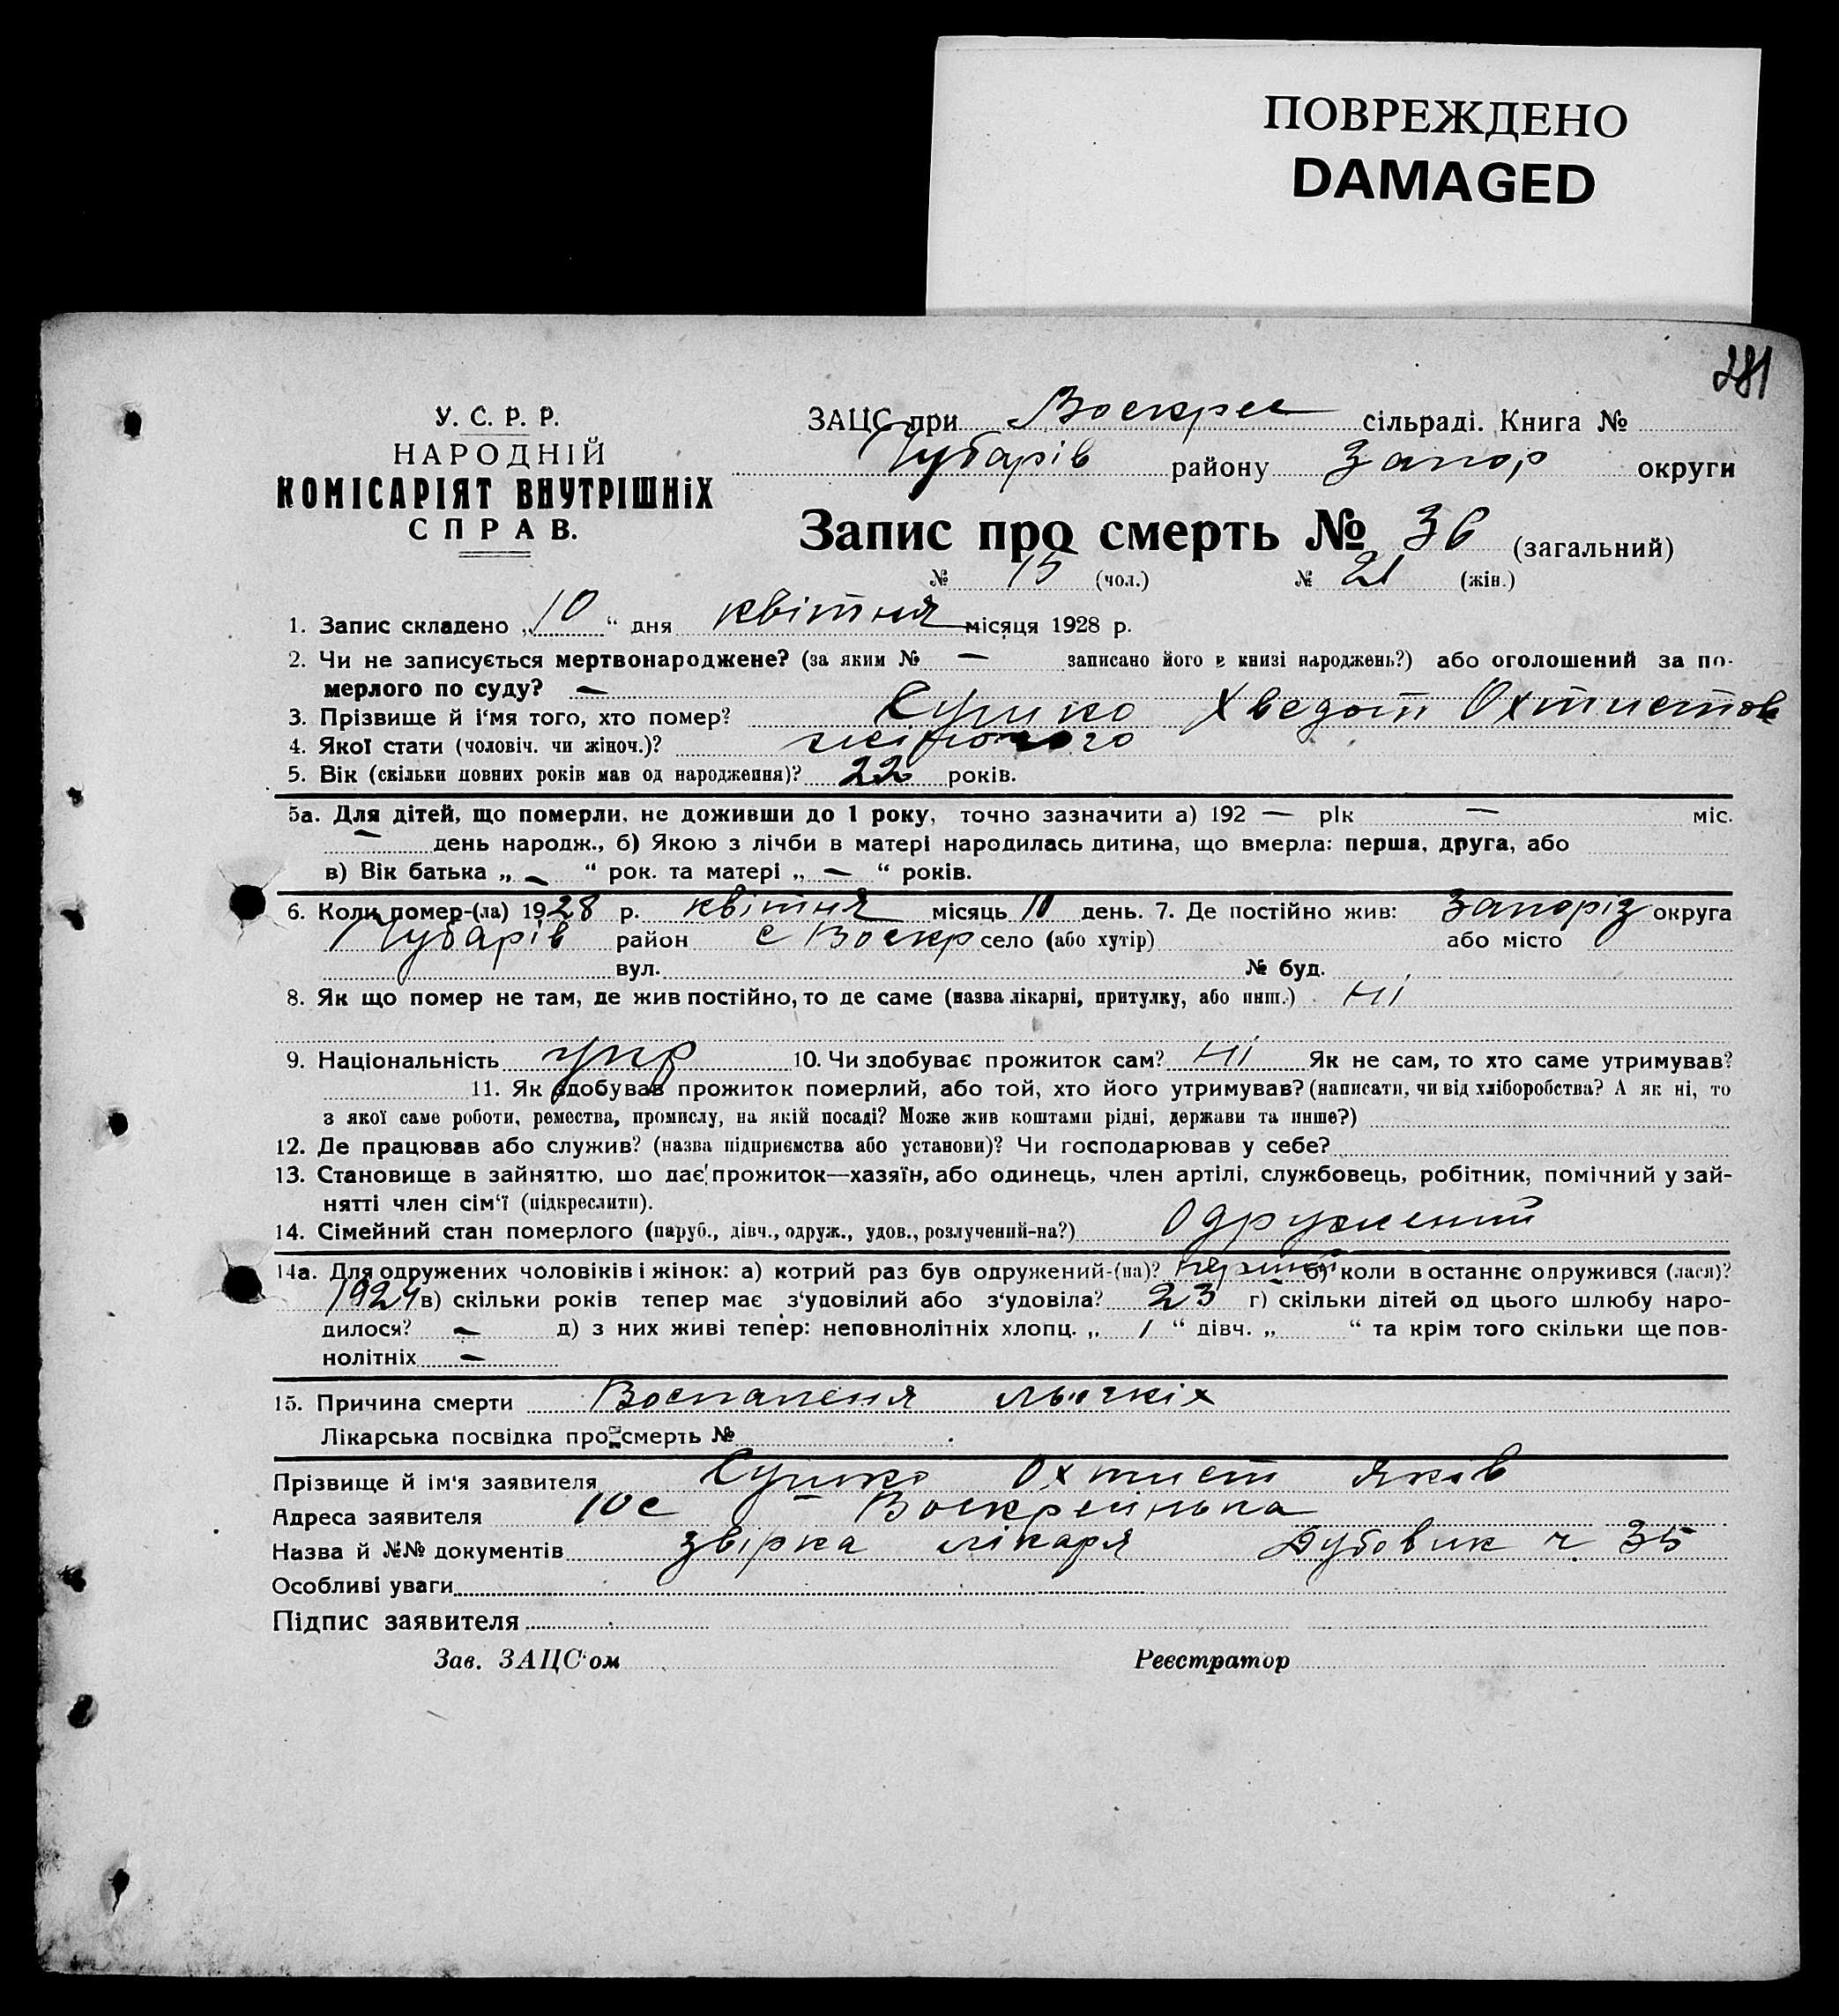 ПОВРЕЖДЕНО
DAMAGED
281
У. С. Р. Р.
НАРОДНІЙ
КОМІСАРІЯТ ВНУТРІШНІХ
СПРАВ.
ЗАЦС при Воскрес сільраді. Книга №
Чубарів району Запор округи
Запис про смерть № 36 (загальний)
№ 15 (чол.) № 21 (жін.)
1. Запис складено „10“ дня квітня місяця 1928 р.
2. Чи не записується мертвонароджене? (за яким № — записано його в книзі народжень?) або оголошений за по-
мерлого по суду? —
3. Прізвище й і‘мя того, хто помер? Сушко Хведот Охтистов
4. Якої стати (чоловіч. чи жіноч.)?
5. Вік (скільки повних років мав од народження)? 22 років.
5а. Для дітей, що померли, не доживши до 1 року, точно зазначити а) 192 — рік — міс.
— день народж., б) Якою з лічби в матері народилась дитина, що вмерла: перша, друга, або
в) Вік батька „ — “ рок. та матері „ — “ років.
6. Коли помер-(ла) 1928 р. квітня місяць 10 день. 7. Де постійно жив: Запоріз округа
Чубарів район с Воскр село (або хутір) або місто
вул. № буд.
8. Як що помер не там, де жив постійно, то де саме (назва лікарні, притулку, або инш.) Ні
9. Національність укр 10. Чи здобуває прожиток сам? Ні Як не сам, то хто саме утримував?
11. Як здобував прожиток померлий, або той, хто його утримував? (написати, чи від хліборобства? А як ні, то
з якої саме роботи, ремества, промислу, на якій посаді? Може жив коштами рідні, держави та инше?)
12. Де працював або служив? (назва підприємства або установи)? Чи господарював у себе?
13. Становище в зайняттю, шо дає прожиток—хазяїн, або одинець, член артілі, службовець, робітник, помічний у зай-
нятті член сім‘ї (підкреслити).
14. Сімейний стан померлого (паруб., дівч., одруж., удов., розлучений-на?) Одружений
14а. Для одружених чоловіків і жінок: а) котрий раз був одружений-(на)? перший б) коли востаннє одружився (лася)?
1924 в) скільки років тепер має з‘удовілий або з‘удовіла? 23 г) скільки дітей од цього шлюбу наро-
дилося? — д) з них живі тепер: неповнолітніх хлопц. „ 1 “ дівч. „ “ та крім того скільки ще пов-
нолітніх —
15. Причина смерти Воспаленя льогкіх
Лікарська посвідка про смерть №
Прізвище й ім‘я заявителя Сушко Охтист Яков
Адреса заявителя Воскресінька
Назва й №№ документів звірка лікаря Дубовик ч 35
Особливі уваги
Підпис заявителя
Зав. ЗАЦС‘ом Реєстратор